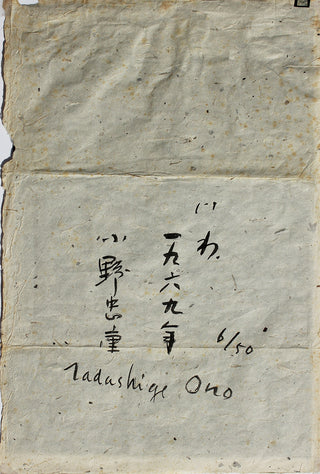 いわ
一九六九年
小野忠重
6/50
Tadashige Ono